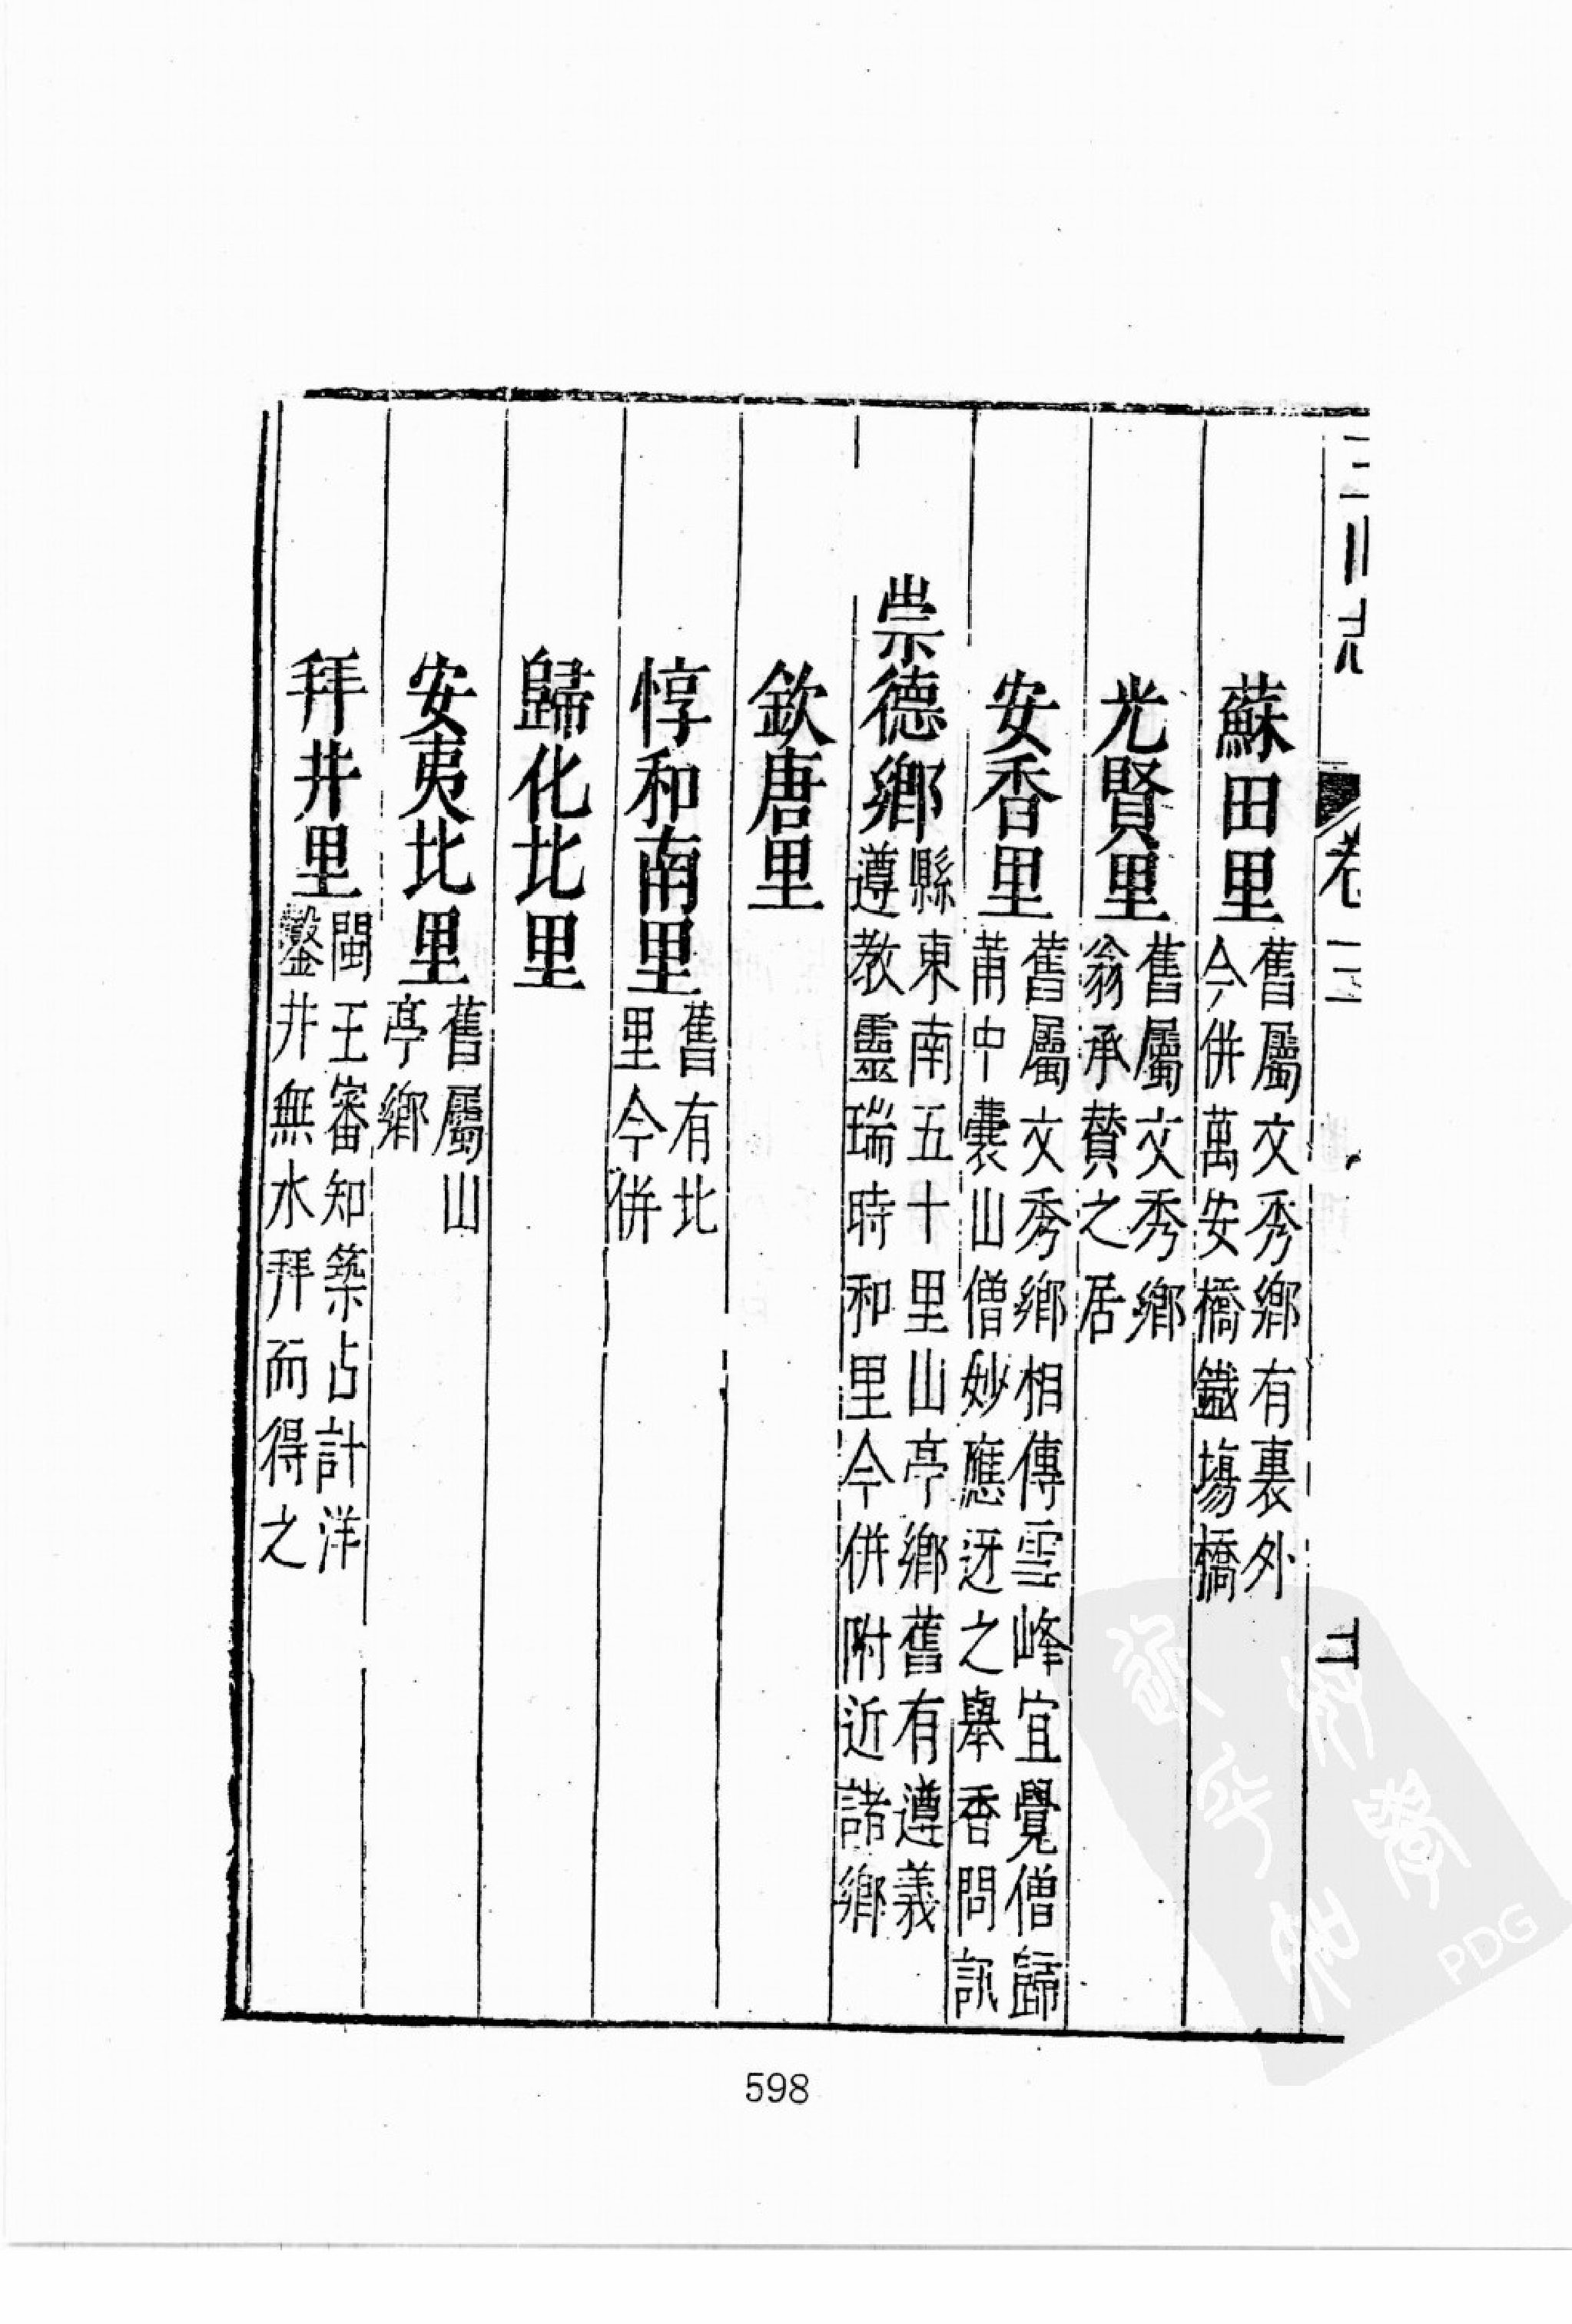 三山志 卷三
蘇田里 舊屬文秀鄉有裏外
今併萬安橋鐵場橋
光賢里 舊屬文秀鄉
翁承贊之居
安香里 舊屬文秀鄉相傳雪峰宜覺僧歸
莆中囊山僧妙應迓之舉香問訊
崇德鄉 縣東南五十里山亭鄉舊有遵義
遵教靈瑞時和里今併附近諸鄉
欽唐里
惇和南里 舊有北
里今併
歸化北里
安夷北里 舊屬山
亭鄉
拜井里 閩王審知築占計洋
鑿井無水拜而得之
598
PDG